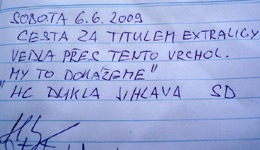 SOBOTA 6.6.2009
CESTA ZA TITULEM EXTRALIGY
VEDLA PŘES TENTO VRCHOL.
MY TO DOKÁŽEME"
"HC DUKLA JIHLAVA SD